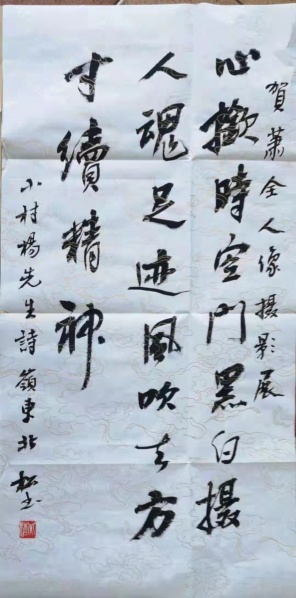 賀蕭全人像摄影展
心時空門黑白摄
人魂足迹風吹去方
寸續精神
小村楊先生詩嶺東北松书